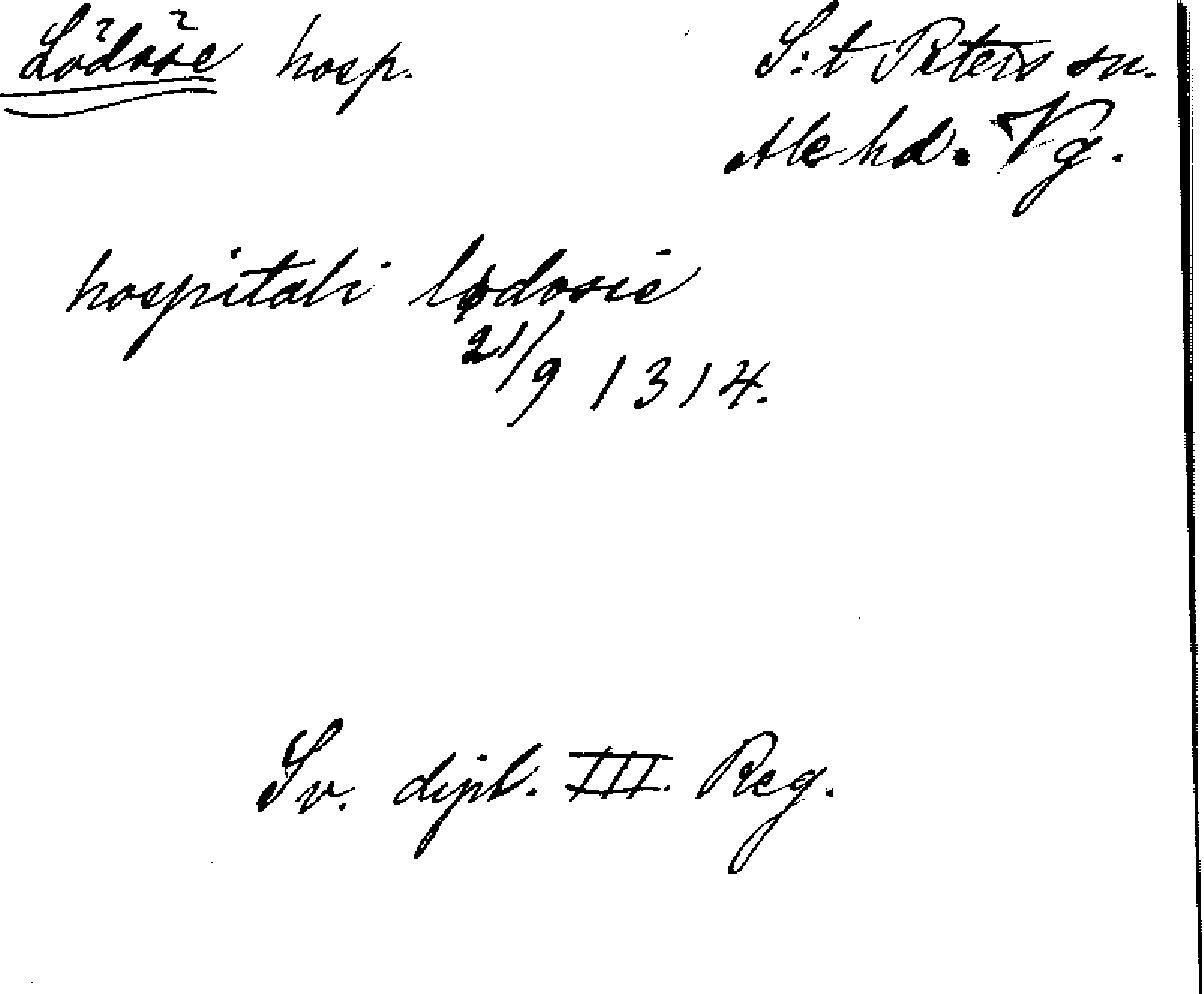 Lödöse hosp.
S:t Peters sn.
Ale hd. Vg.
hospitali lødosie
21/9 1314.
Sv. dipl. III. Reg.